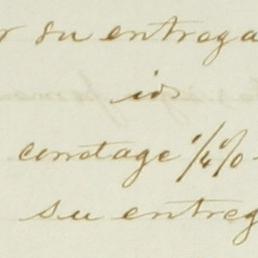 r su entrega
id
corretage 1/4%
su entreg